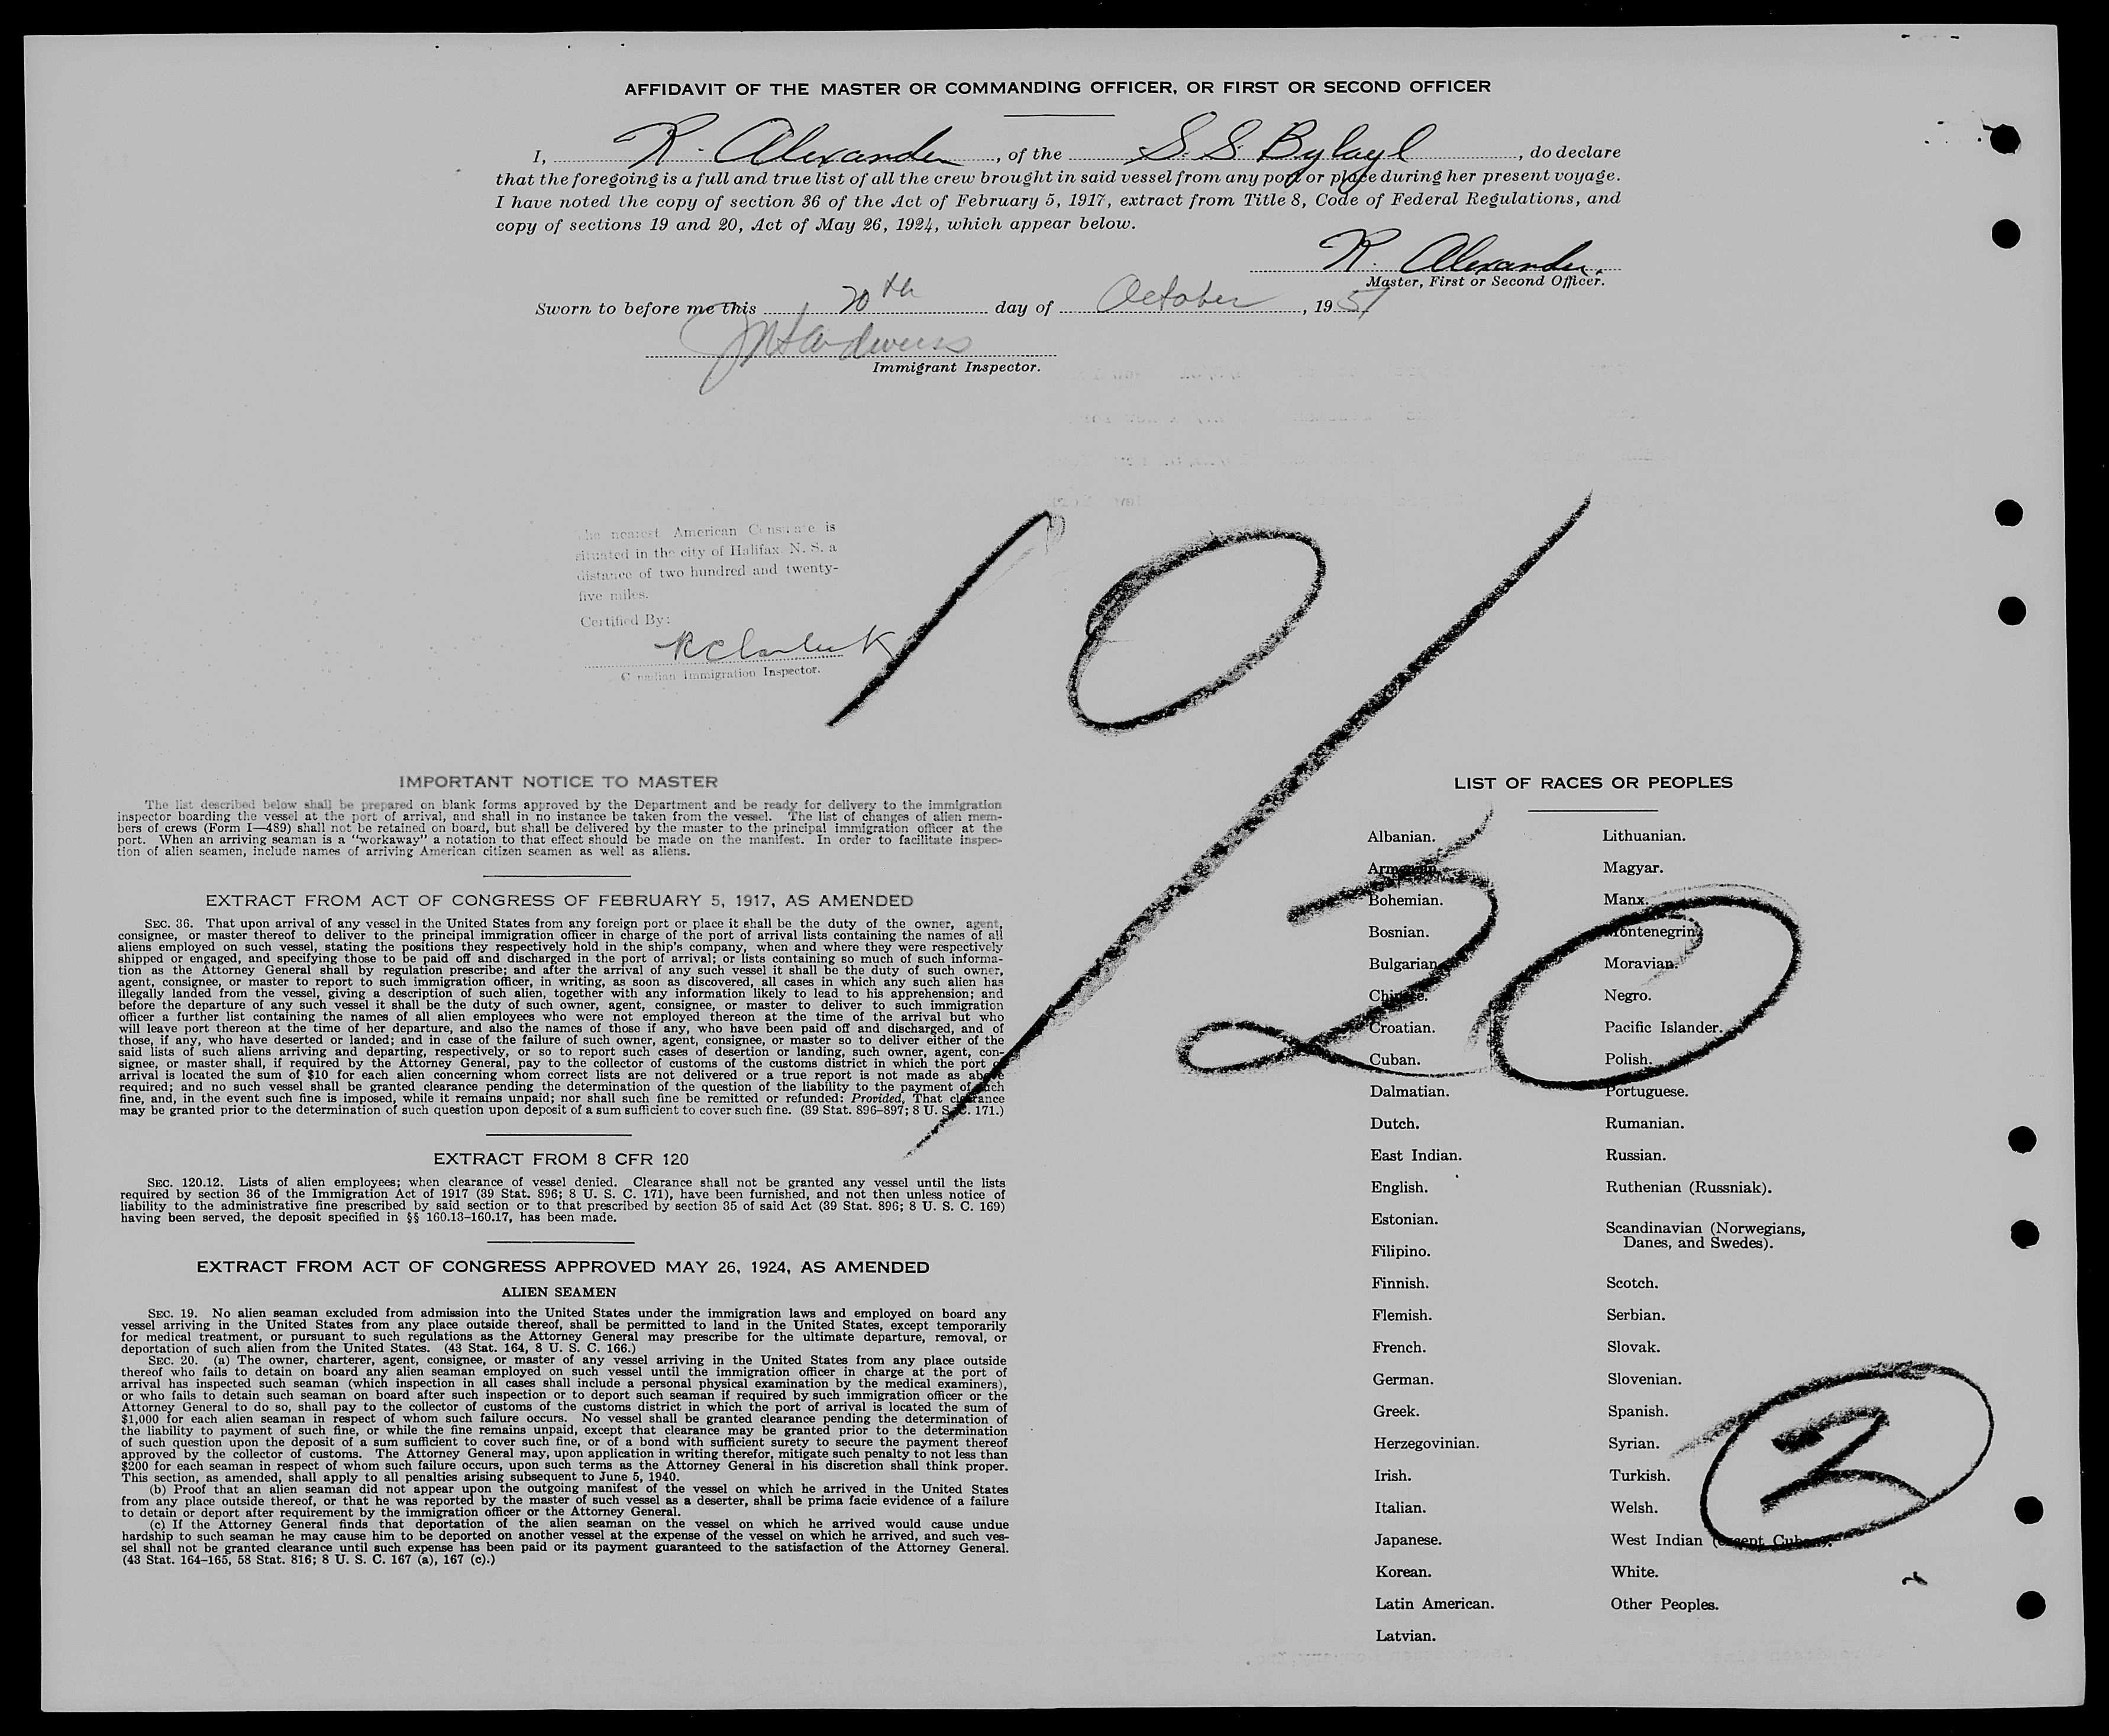 AFFIDAVIT OF THE MASTER OR COMMANDING OFFICER, OR FIRST OR SECOND OFFICER
I, R. Alexander, of the S. S. Bylayl, do declare
that the foregoing is a full and true list of all the crew brought in said vessel from any port or place during her present voyage.
I have noted the copy of section 36 of the Act of February 5, 1917, extract from Title 8, Code of Federal Regulations, and
copy of sections 19 and 20, Act of May 26, 1924, which appear below.
R. Alexander
Master, First or Second Officer.
Sworn to before me this 20th day of October, 1951
Immigrant Inspector.
The nearest American Consulate is
situated in the city of Halifax N. S. a
distance of two hundred and twenty-
five miles.
Certified By:
Canadian Immigration Inspector.
10/20
IMPORTANT NOTICE TO MASTER
The list described below shall be prepared on blank forms approved by the Department and be ready for delivery to the immigration
inspector boarding the vessel at the port of arrival, and shall in no instance be taken from the vessel. The list of changes of alien mem-
bers of crews (Form I—489) shall not be retained on board, but shall be delivered by the master to the principal immigration officer at the
port. When an arriving seaman is a "workaway" a notation to that effect should be made on the manifest. In order to facilitate inspec-
tion of alien seamen, include names of arriving American citizen seamen as well as aliens.
EXTRACT FROM ACT OF CONGRESS OF FEBRUARY 5, 1917, AS AMENDED
SEC. 36. That upon arrival of any vessel in the United States from any foreign port or place it shall be the duty of the owner, agent,
consignee, or master thereof to deliver to the principal immigration officer in charge of the port of arrival lists containing the names of all
aliens employed on such vessel, stating the positions they respectively hold in the ship's company, when and where they were respectively
shipped or engaged, and specifying those to be paid off and discharged in the port of arrival; or lists containing so much of such informa-
tion as the Attorney General shall by regulation prescribe; and after the arrival of any such vessel it shall be the duty of such owner,
agent, consignee, or master to report to such immigration officer, in writing, as soon as discovered, all cases in which any such alien has
illegally landed from the vessel, giving a description of such alien, together with any information likely to lead to his apprehension; and
before the departure of any such vessel it shall be the duty of such owner, agent, consignee, or master to deliver to such immigration
officer a further list containing the names of all alien employees who were not employed thereon at the time of the arrival but who
will leave port thereon at the time of her departure, and also the names of those if any, who have been paid off and discharged, and of
those, if any, who have deserted or landed; and in case of the failure of such owner, agent, consignee, or master so to deliver either of the
said lists of such aliens arriving and departing, respectively, or so to report such cases of desertion or landing, such owner, agent, con-
signee, or master shall, if required by the Attorney General, pay to the collector of customs of the customs district in which the port of
arrival is located the sum of $10 for each alien concerning whom correct lists are not delivered or a true report is not made as above
required; and no such vessel shall be granted clearance pending the determination of the question of the liability to the payment of such
fine, and, in the event such fine is imposed, while it remains unpaid; nor shall such fine be remitted or refunded: Provided, That clearance
may be granted prior to the determination of such question upon deposit of a sum sufficient to cover such fine. (39 Stat. 896-897; 8 U. S. C. 171.)
EXTRACT FROM 8 CFR 120
SEC. 120.12. Lists of alien employees; when clearance of vessel denied. Clearance shall not be granted any vessel until the lists
required by section 36 of the Immigration Act of 1917 (39 Stat. 896; 8 U. S. C. 171), have been furnished, and not then unless notice of
liability to the administrative fine prescribed by said section or to that prescribed by section 35 of said Act (39 Stat. 896; 8 U. S. C. 169)
having been served, the deposit specified in §§ 160.13-160.17, has been made.
EXTRACT FROM ACT OF CONGRESS APPROVED MAY 26, 1924, AS AMENDED
ALIEN SEAMEN
SEC. 19. No alien seaman excluded from admission into the United States under the immigration laws and employed on board any
vessel arriving in the United States from any place outside thereof, shall be permitted to land in the United States, except temporarily
for medical treatment, or pursuant to such regulations as the Attorney General may prescribe for the ultimate departure, removal, or
deportation of such alien from the United States. (43 Stat. 164, 8 U. S. C. 166.)
SEC. 20. (a) The owner, charterer, agent, consignee, or master of any vessel arriving in the United States from any place outside
thereof who fails to detain on board any alien seaman employed on such vessel until the immigration officer in charge at the port of
arrival has inspected such seaman (which inspection in all cases shall include a personal physical examination by the medical examiners),
or who fails to detain such seaman on board after such inspection or to deport such seaman if required by such immigration officer or the
Attorney General to do so, shall pay to the collector of customs of the customs district in which the port of arrival is located the sum of
$1,000 for each alien seaman in respect of whom such failure occurs. No vessel shall be granted clearance pending the determination of
the liability to payment of such fine, or while the fine remains unpaid, except that clearance may be granted prior to the determination
of such question upon the deposit of a sum sufficient to cover such fine, or of a bond with sufficient surety to secure the payment thereof
approved by the collector of customs. The Attorney General may, upon application in writing therefor, mitigate such penalty to not less than
$200 for each seaman in respect of whom such failure occurs, upon such terms as the Attorney General in his discretion shall think proper.
This section, as amended, shall apply to all penalties arising subsequent to June 5, 1940.
(b) Proof that an alien seaman did not appear upon the outgoing manifest of the vessel on which he arrived in the United States
from any place outside thereof, or that he was reported by the master of such vessel as a deserter, shall be prima facie evidence of a failure
to detain or deport after requirement by the immigration officer or the Attorney General.
(c) If the Attorney General finds that deportation of the alien seaman on the vessel on which he arrived would cause undue
hardship to such seaman he may cause him to be deported on another vessel at the expense of the vessel on which he arrived, and such ves-
sel shall not be granted clearance until such expense has been paid or its payment guaranteed to the satisfaction of the Attorney General.
(43 Stat. 164-165, 58 Stat. 816; 8 U. S. C. 167 (a), 167 (c).)
LIST OF RACES OR PEOPLES
Albanian.
Armenian.
Bohemian.
Bosnian.
Bulgarian.
Chinese.
Croatian.
Cuban.
Dalmatian.
Dutch.
East Indian.
English.
Estonian.
Filipino.
Finnish.
Flemish.
French.
German.
Greek.
Herzegovinian.
Irish.
Italian.
Japanese.
Korean.
Latin American.
Latvian.
Lithuanian.
Magyar.
Manx.
Montenegrin.
Moravian.
Negro.
Pacific Islander.
Polish.
Portuguese.
Rumanian.
Russian.
Ruthenian (Russniak).
Scandinavian (Norwegians,
Danes, and Swedes).
Scotch.
Serbian.
Slovak.
Slovenian.
Spanish.
Syrian.
Turkish.
Welsh.
West Indian (except Cuban).
White.
Other Peoples.
2